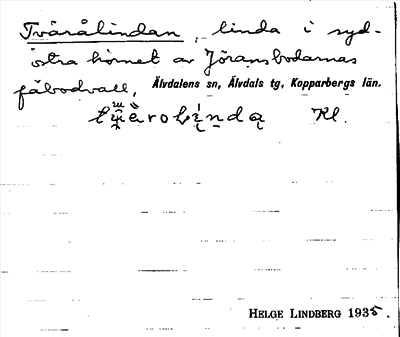 Tvärålindan, linda i syd-
östra hörnet av Jöransbodarnas
fäbodvall, Älvdalens sn, Älvdals tg, Kopparbergs län.
Kl.
HELGE LINDBERG 1935.